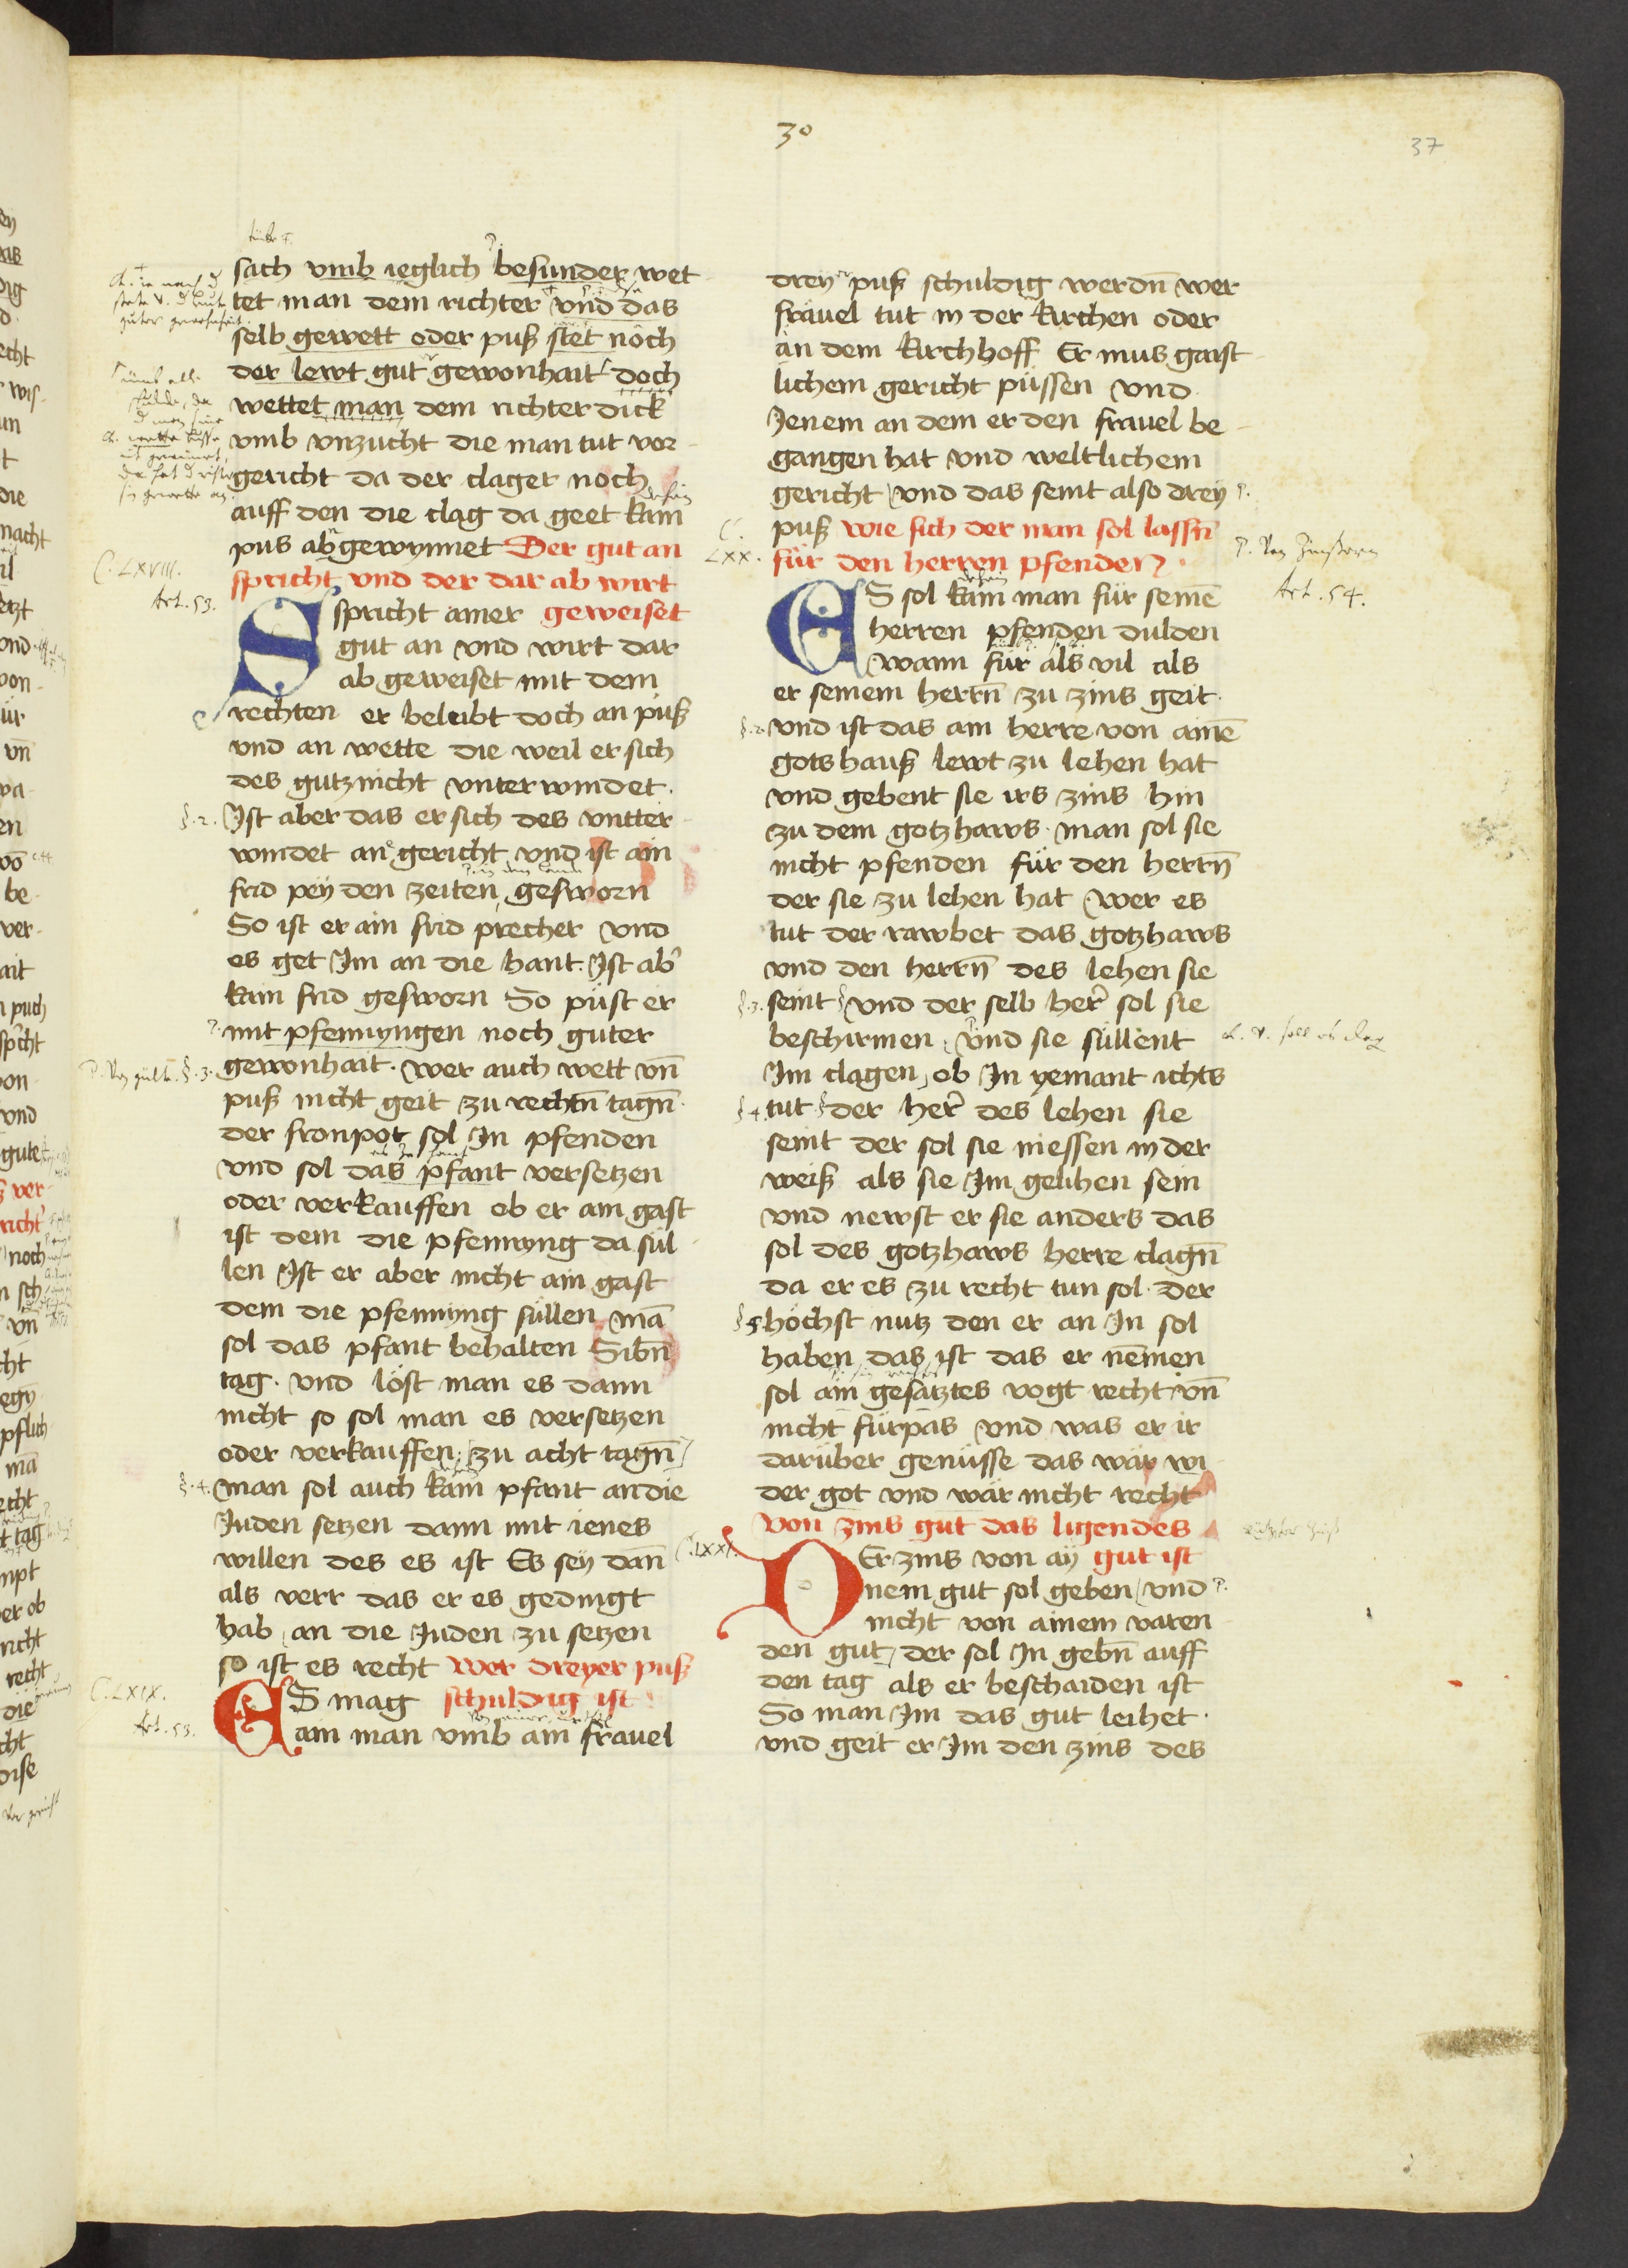 30
37
sach vmb ieglich besunder wet
tet man dem richter vnd das
selb gewett oder puß stet noch
der lewt gut gewonhait doch
wettet man dem richter dick
vmb vnzucht die man tut vor
gericht da der clager noch
auff den die clag da geet kain
pus ab gewynnet Der gut an
spricht vnd der dar ab wirt
C. LXVIII.
Art. 53.
Spricht ainer geweiset
gut an vnd wirt dar
ab geweiset mit dem
rechten er beleibt doch an puß
vnd an wette die weil er sich
des gutz nicht vnter windet.
§.2. Ist aber das er sich des vntter
windet an gericht vnd ist ain
frid pey den zeiten gesworn
So ist er ain frid precher vnd
es get Im an die hant. Ist ab̉
kain frid gesworn So püst er
mit pfennyngen noch guter
§.3. gewonhait. wer auch wett vn̄
puß nicht geit zu rechtn̄ tagn̄.
der fronpot sol In pfenden
vnd sol das pfant versetzen
oder verkauffen ob er ain gast
ist dem die pfennyng da sul
len Ist er aber nicht ain gast
dem die pfennyng süllen mā
sol das pfant behalten Sibn̄
tag. vnd löst man es dann
nicht so sol man es versetzen
oder verkauffen zu acht tagn̄
§.4. man sol auch kain pfant an die
Juden setzen dann mit ienes
willen des es ist Es sey dan̄
als verr das er es gedingt
hab an die Juden zu setzen
so ist es recht Wer dreyer puß
C. LXIX.
Art. 53.
ES mag schuldig ist
ain man vmb ain frauel
drey puß schuldig werdn̄ wer
fräuel tut in der kirchen oder
an dem kirchhoff Er mus gaist
lichem gericht püssen vnd
Jenem an dem er den frauel be
gangen hat vnd weltlichem
gericht vnd das seint also drey
puß wie sich der man sol lassn̄
für den herren pfenden.
C. LXX.
Art. 54.
ES sol kain man für seinē
herren pfenden dulden
wann für als vil als
er seinem herrn̄ zu zins geit.
§.2. vnd ist das ain herre von ainē
gotshauß lewt zu lehen hat
vnd gebent sie irs zins hin
zu dem gotzhaws. man sol sie
nicht pfenden für den herrn̄
der sie zu lehen hat wer es
tut der rawbet das gotzhaws
vnd den herrn̄ des lehen sie
§.3. seint vnd der selb her̉ sol sie
beschirmen vnd sie süllent
Im clagen ob In yemant ichts
§.4. tut der her̉ des lehen sie
seint der sol sie niessen in der
weiß als sie Im gelihen sein
vnd newst er sie anders das
sol des gotzhaws herre clagn̄
da er es zu recht tun sol. der
§.5 höchst nutz den er an In sol
haben das ist das er nemen
sol ain gesatztes vogt recht vn̄
nicht fürpas vnd was er ir
darüber genüsse das wär wi
der got vnd wär nicht recht
Von zins gut das ligendes
C. LXXI.
DEr zins von ay gut ist
nem gut sol geben vnd
nicht von ainem varen
den gut der sol In gebn̄ auff
den tag als er beschaiden ist
So man Im das gut leihet.
vnd geit er Im den zins des